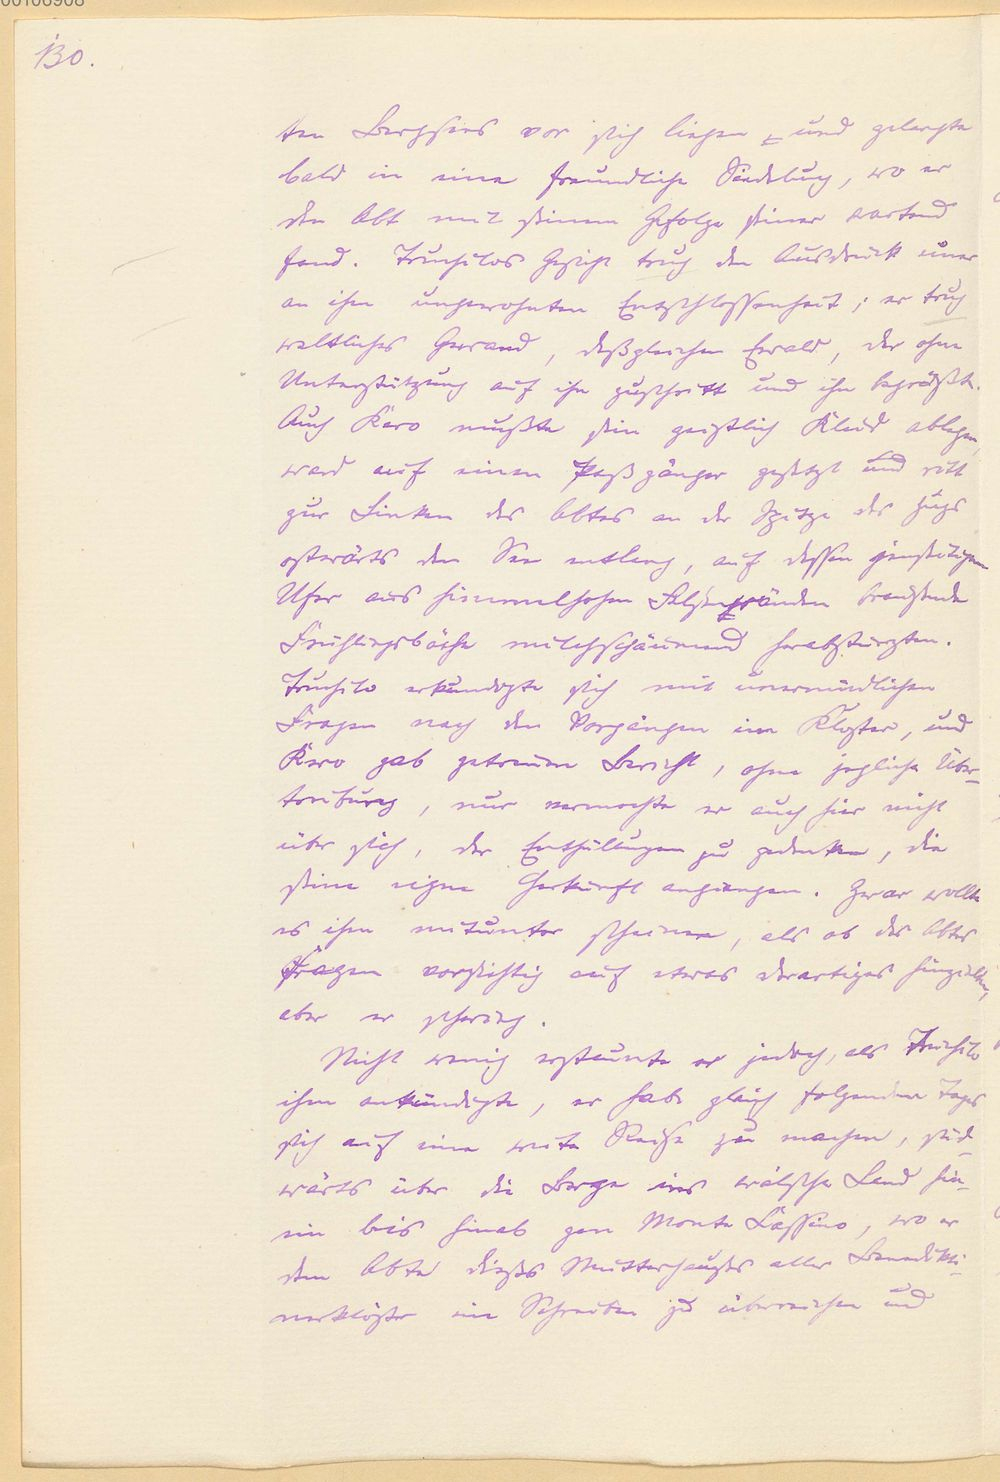 00106908
130.
ten Bergsees vor sich liegen, und gelangte
bald in eine freundliche Siedelung, wo er
den Abt mit seinem Gefolge seiner wartend
fand. Truchilos Gesicht trug den Ausdruck einer
an ihm ungewohnten Entschlossenheit; er trug
weltliches Gewand, desgleichen Ewald, der ohne
Unterstützung auf ihn zuschritt und ihn begrüßte.
Auch Kero mußte sein geistlich Kleid ablegen,
ward auf einen Paßgänger gesetzt und ritt
zur Linken des Abtes an der Spitze des Zugs
ostwärts den See entlang, auf dessen jenseitigem
Ufer aus himmelhohen Felsenwänden brausende
Frühlingsbäche milchschäumend herabstürzten.
Truchilo erkundigte sich mit unermüdlichen
Fragen nach den Vorgängen im Kloster, und
Kero gab getreuen Bericht, ohne jegliche Über-
treibung, nur vermochte er auch hier nicht
über sich, der Enthüllungen zu gedenken, die
seine eigne Herkunft angiengen. Zwar wollte
es ihm mitunter scheinen, als ob des Abtes
Fragen vorsichtig auf etwas derartiges hinzielten,
aber er schwieg.
Nicht wenig erstaunte er jedoch, als Truchilo
ihm ankündigte, er habe gleich folgenden Tags
sich auf eine weite Reise zu machen, süd-
wärts über die Berge ins wälsche Land hin-
ein bis hinab gen Monte Cassino, wo er
dem Abte dieses Mutterhauses aller Benedikti-
nerklöster ein Schreiben zu überreichen und